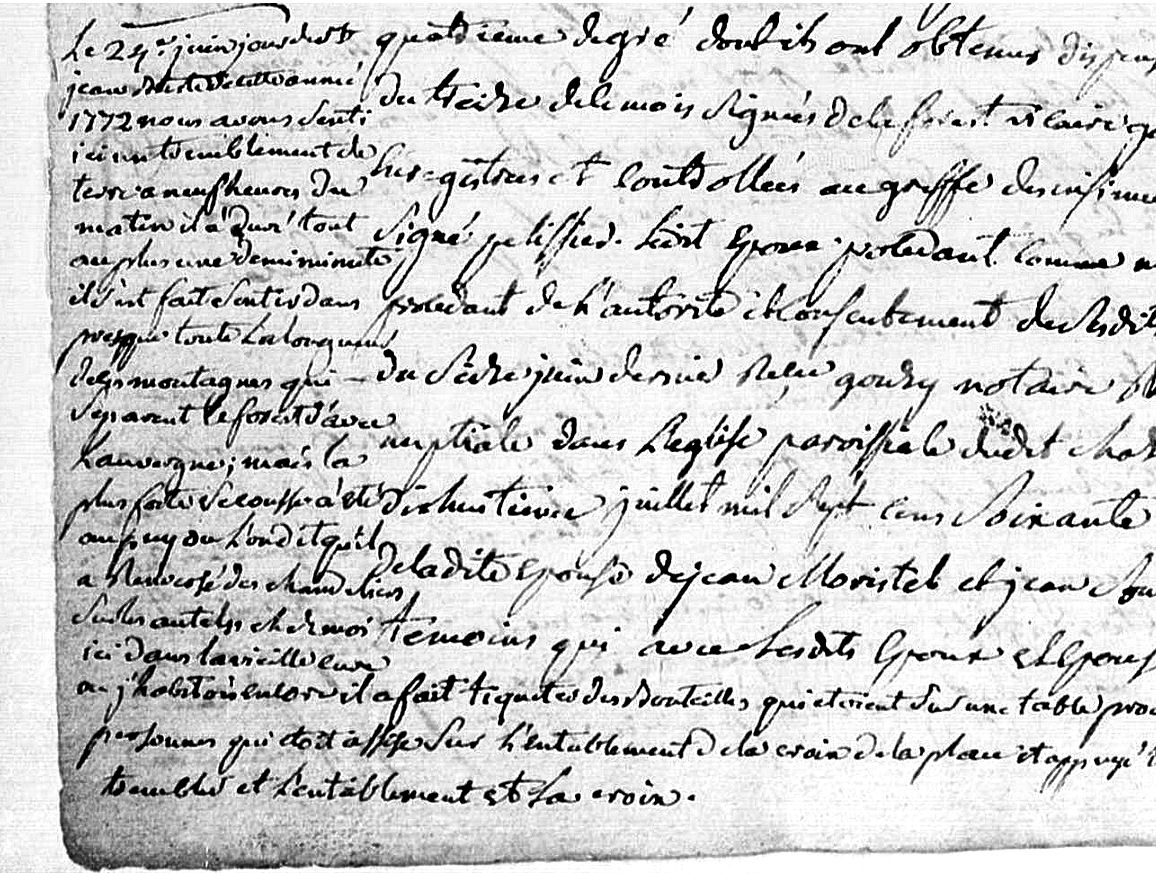 Le 24e juin jour de st
jean de cette année
1772 nous avons senti
ici un tremblement de
terre a neuf heures du
matin il a duré tout
au plus une demi minute
il s'est fait sentir dans
presque toute la longueur
des montagnes qui
separent le forest d'avec
l'auvergne; mais la
plus forte secousse a été
au puy ou l'on dit qu'il
a renversé des chandeliers
sur les autels; chez moi
ici dans la vieille cure
ou j'habitois encore il a fait tiqueter des bouteilles qui etoient sur une table
personnes qui etoit assise sur l'entablement de la croix de la place et appuyé
tremblé et l'entablement et la croix.
quatrieme degré dont ils ont obtenus dispens
du treize de le mois signées de la forest vicaire
enregistrées et controllées au greffe des insinu
signé pelissier. Ledit Epoux procedant comme
procedant de l'autorité et consentement de sesdits
du seize juin dernier Reçu goutry notaire
nuptiale dans l'eglise paroissiale dudit
dixhuitieme juillet mil sept cens soixante
de ladite epouse de jean et jean
temoins qui avec lesdits Epoux et Epous